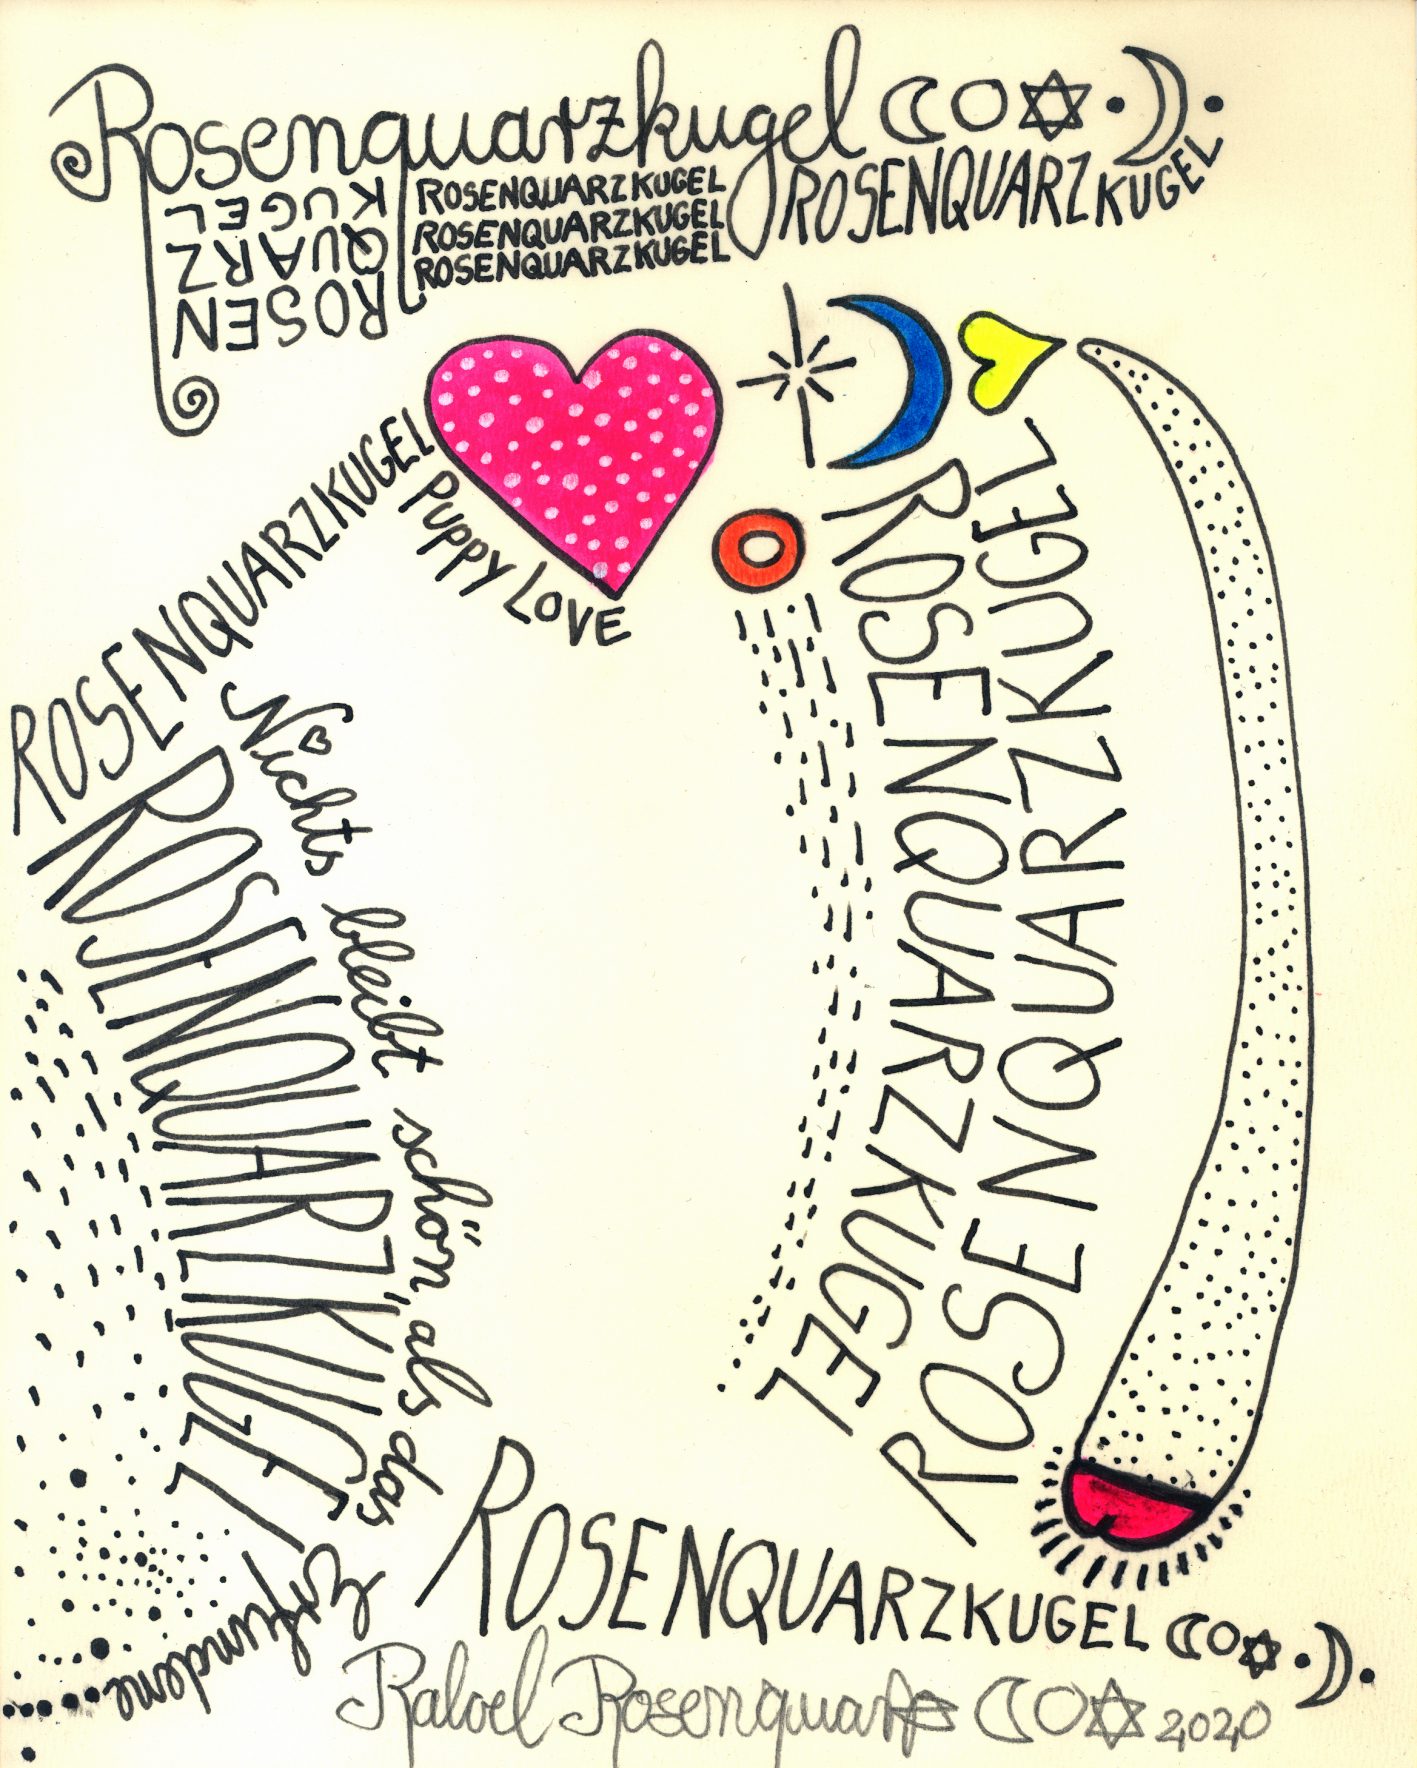 Rosenquarzkugel
ROSENQUARZKUGEL
ROSENQUARZKUGEL
ROSENQUARZKUGEL
ROSENQUARZKUGEL
ROSEN
QUARZ
KUGEL
ROSENQUARZKUGEL
PUPPY LOVE
ROSENQUARZKUGEL
ROSENQUARZKUGEL
ROSENQUARZKUGEL
Nichts bleibt schön, als das
Erfundene
ROSENQUARZKUGEL
Rosenquartz 2020